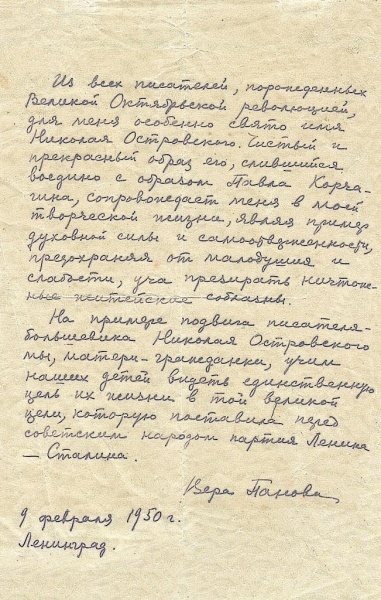 Из всех писателей, порожденных
Великой Октябрьской революцией,
для меня особенно свято имя
Николая Островского. Чистый и
прекрасный образ его, слившийся
воедино с образом Павла Корча-
гина, сопровождает меня в моей
творческой жизни, являя пример
духовной силы и самоотверженности,
предохраняя от малодушия и
слабости, уча презирать ничтож-
ные житейские соблазны.
На примере подвига писателя-
большевика Николая Островского
мы, матери-гражданки, учим
наших детей видеть единственную
цель их жизни в той великой
цели, которую поставила перед
советским народом партия Ленина
— Сталина.
Вера Панова
9 февраля 1950 г.
Ленинград.